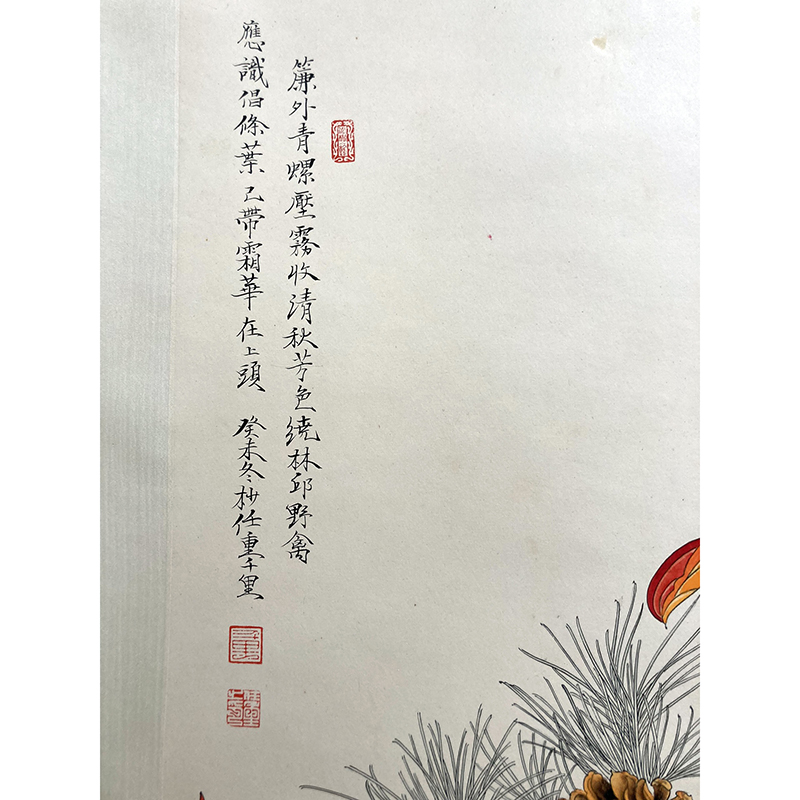 簾外青螺壓霧收清秋芳色繞林邱野禽
應識倡條葉已帶霜華在上頭 癸未冬杪任重千里